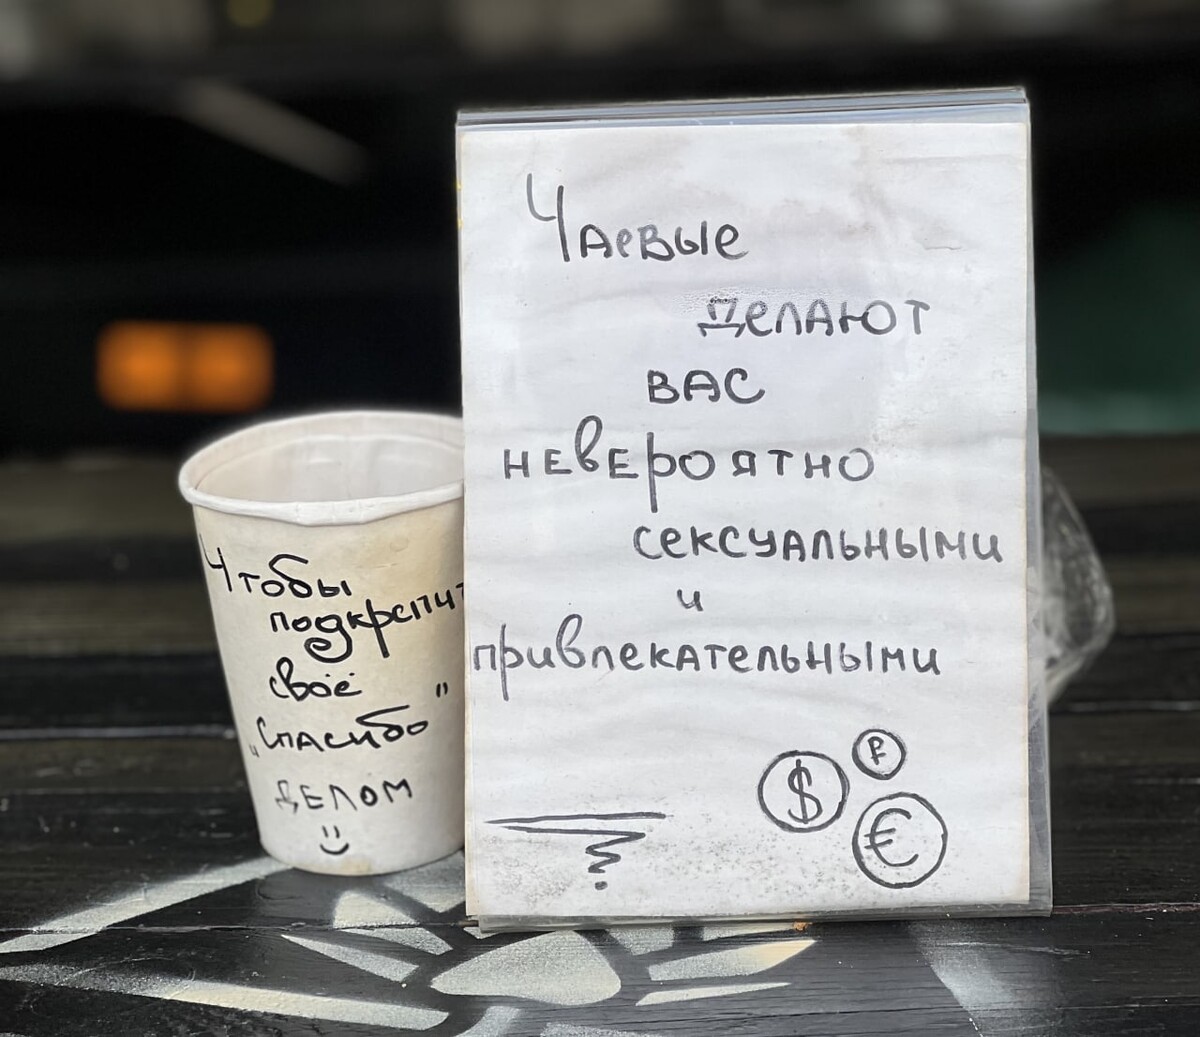 Чтобы
подкрепит
своё
„Спасибо"
делом
Чаевые
делают
вас
невероятно
сексуальными
и
привлекательными
₽
$
€